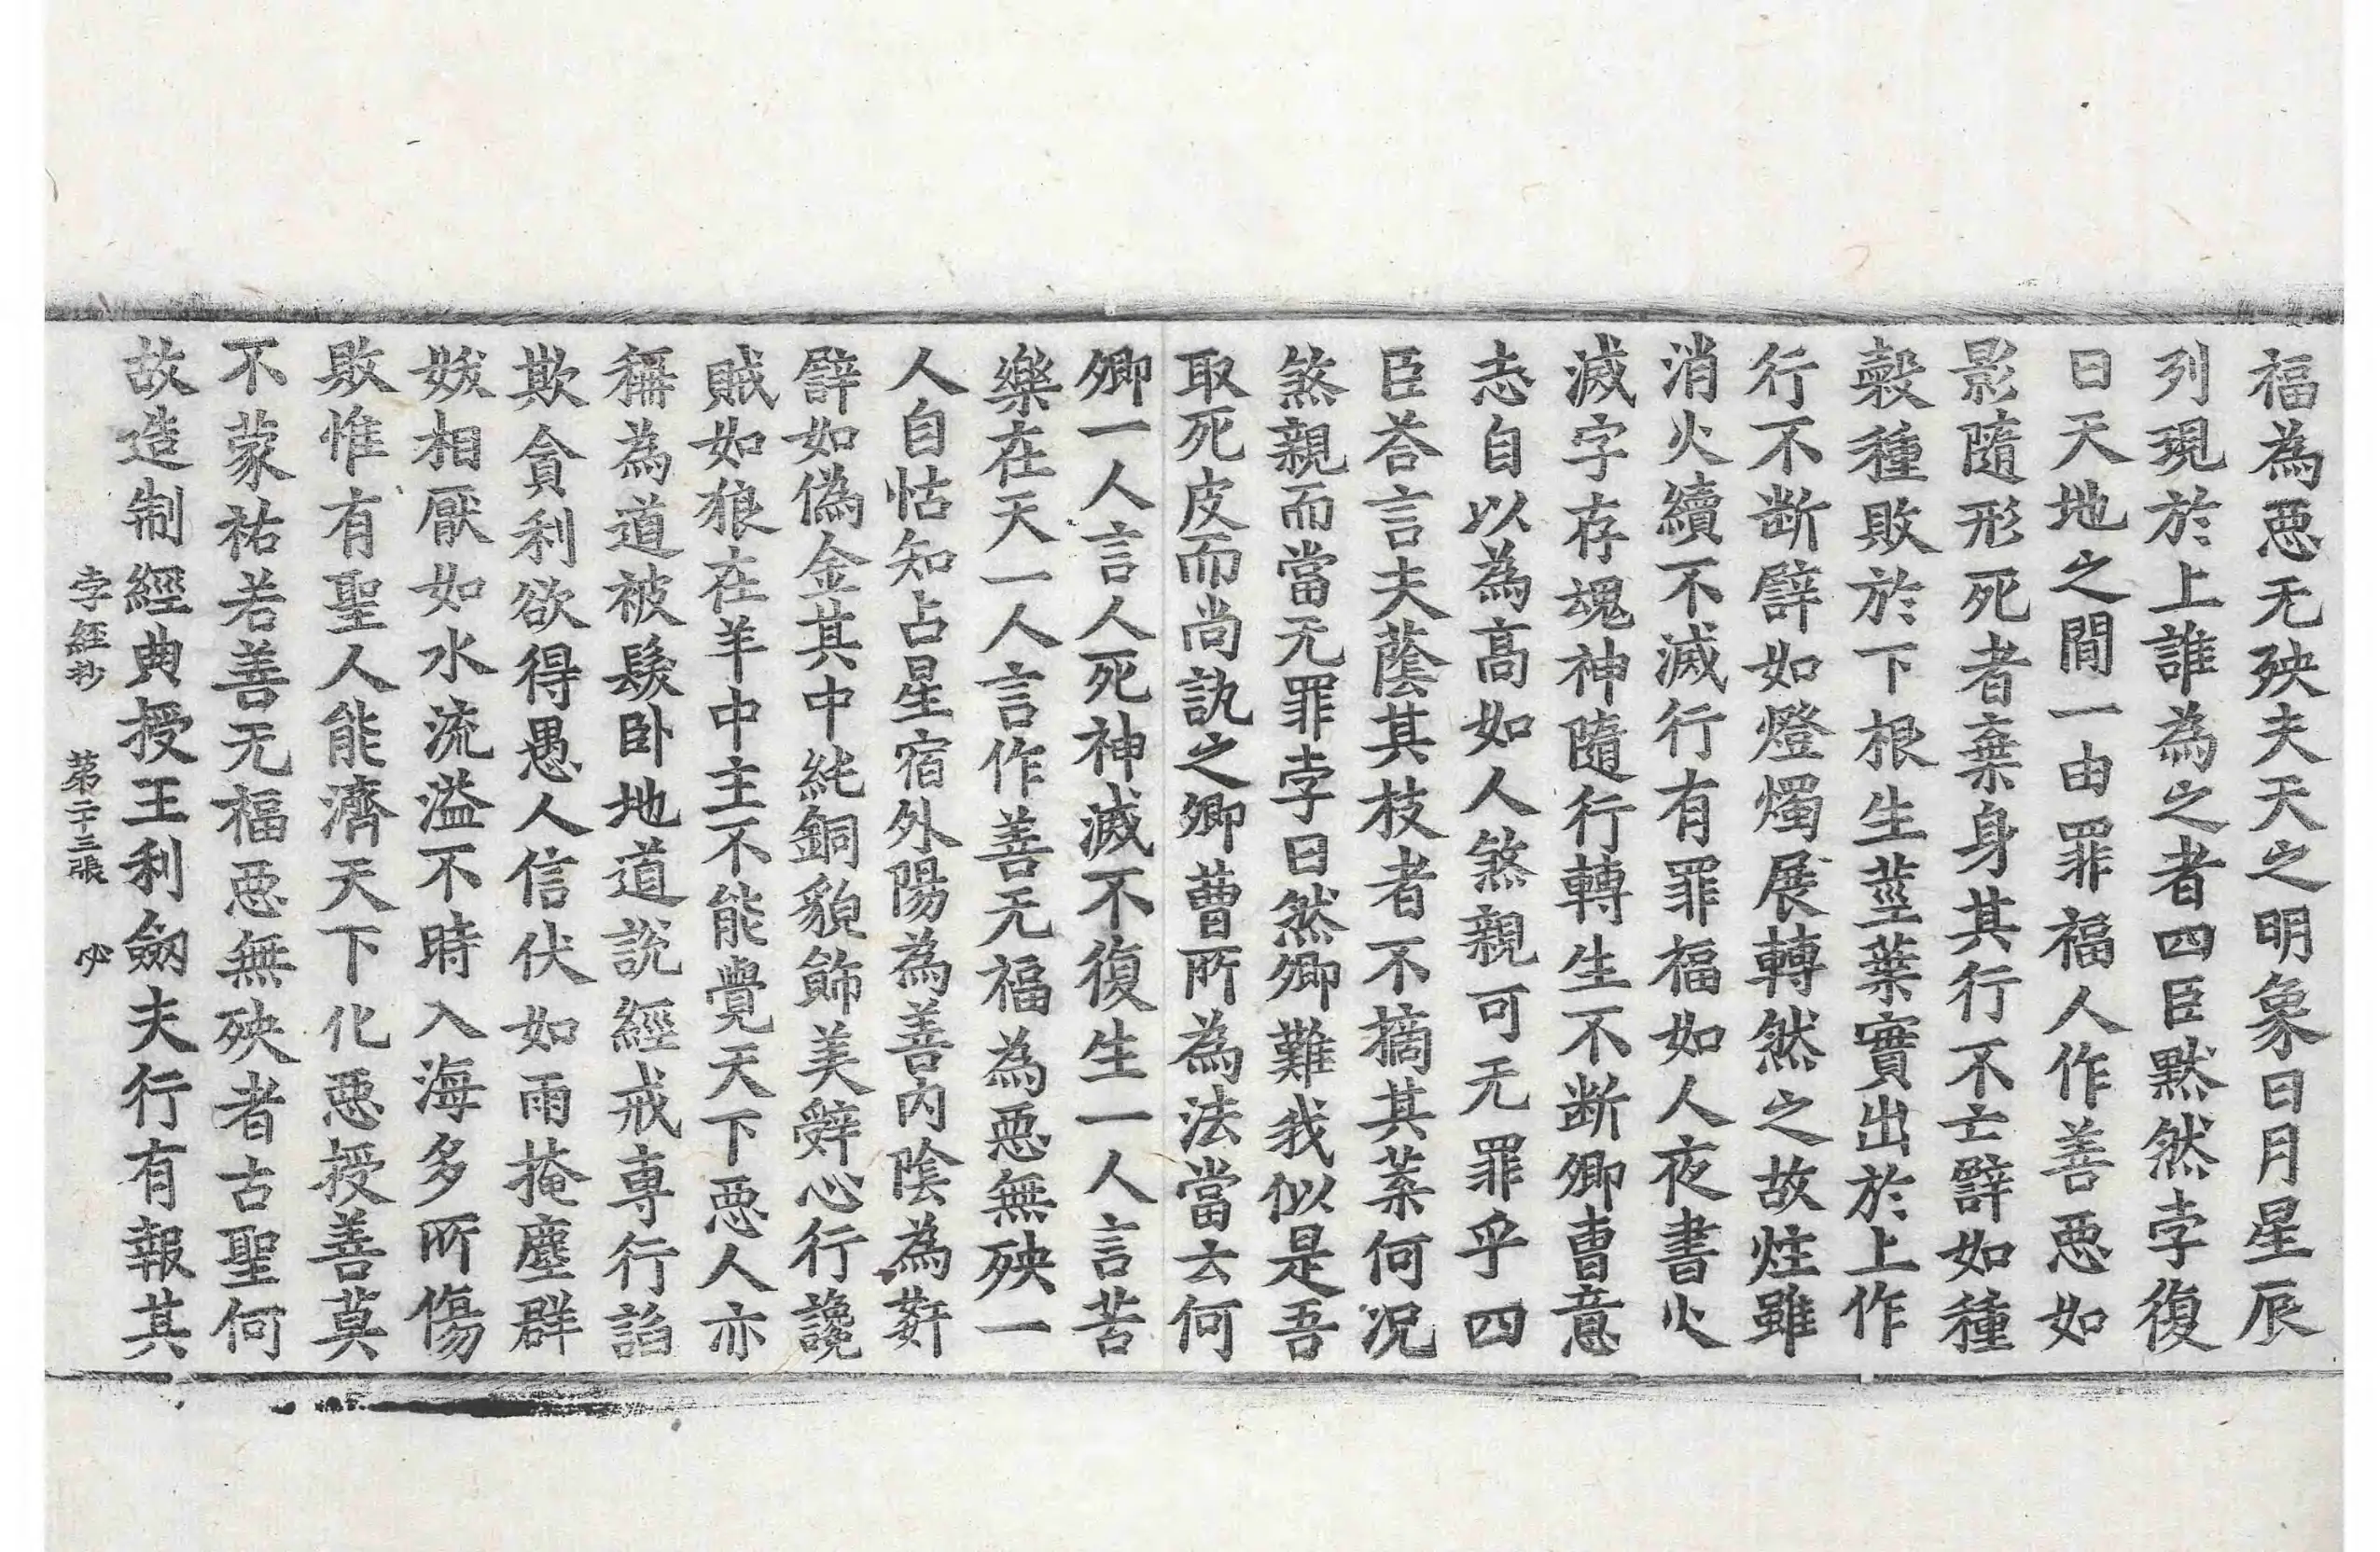 福為惡无殃夫天之明象日月星辰
列現於上誰為之者四臣黙然孛復
曰天地之間一由罪福人作善惡如
影隨形死者棄身其行不亡譬如種
糓種敗於下根生莖葉實出於上作
行不断譬如燈燭展轉然之故炷雖
消火續不滅行有罪福如人夜書火
滅字存魂神隨行轉生不断卿曹意
志自以為高如人煞親可无罪乎四
臣荅言夫蔭其枝者不摘其葉何況
煞親而當无罪孛曰然卿難我似是吾
取死皮而尚訙之卿曹所為法當云何
卿一人言人死神滅不復生一人言苦
樂在天一人言作善无福為惡無殃一
人自怙知占星宿外陽為善內陰為姧
譬如偽金其中純銅貌飾美辤心行讒
賊如狼在羊中主不能覺天下惡人亦
稱為道被髮卧地道說經戒專行諂
欺貪利欲得愚人信伏如雨掩塵群
妭相厭如水流溢不時入海多所傷
敗惟有聖人能濟天下化惡授善莫
不蒙祐若善无福惡無殃者古聖何
故造制經典授王利劒夫行有報其
孛經抄 第二十三張 必